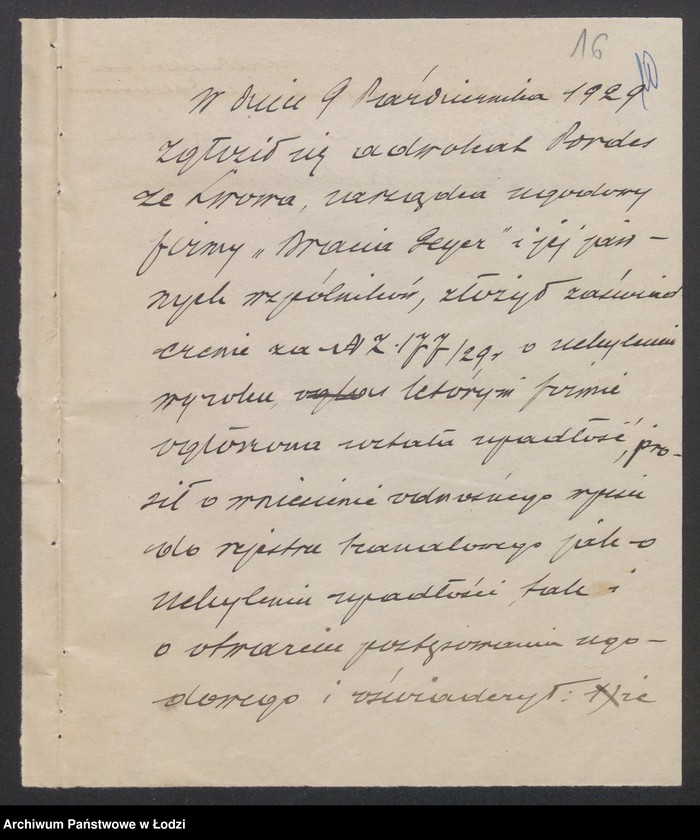 16
10
W dniu 9 Października 1929
zgłosił się adwokat Pordes
ze Lwowa, narządca ugodowy
firmy „Bracia Geyer” i jej jaw-
nych wspólników, złożył zaświad
czenie za № Z.177/29r o uchyleniu
wyroku, którym firmie
ogłoszona została upadłość, pro-
sił o wniesienie odnośnego wpisu
do rejestru handlowego jak o
uchyleniu upadłości tak i
o otwarciu postępowania ugo-
dowego i oświadczył: 1) że
Archiwum Państwowe w Łodzi